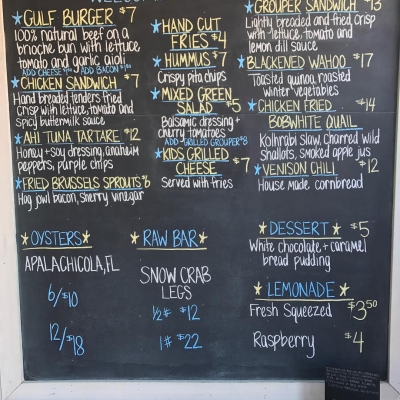 ★GULF BURGER $7
100% natural beef on a
brioche bun with lettuce
tomato and garlic aioli
ADD CHEESE $1.00 ADD BACON $1.00
★CHICKEN SANDWICH $7
Hand breaded tenders fried
crisp with lettuce, tomato and
spicy buttermilk sauce
★AHI TUNA TARTARE $12
Honey + soy dressing, anaheim
peppers, purple chips
★FRIED BRUSSELS SPROUTS $6
Hog jowl bacon, sherry vinegar
★HAND CUT
FRIES $4
★HUMMUS $7
Crispy pita chips
★MIXED GREEN
SALAD $5
Balsamic dressing +
cherry tomatoes
ADD GRILLED GROUPER $8
★KIDS GRILLED
CHEESE $7
Served with fries
GROUPER SANDWICH $13
Lightly breaded and fried, crisp
with lettuce, tomato and
lemon dill sauce
★BLACKENED WAHOO $17
Toasted quinoa, roasted
winter vegetables
★CHICKEN FRIED $14
BOBWHITE QUAIL
Kolhrabi slaw, charred wild
shallots, smoked apple jus
★VENISON CHILI $12
House made cornbread
★OYSTERS★
APALACHICOLA, FL
6/$10
12/$18
★RAW BAR★
SNOW CRAB
LEGS
½# $12
1# $22
★DESSERT★ $5
White chocolate + caramel
bread pudding
★LEMONADE★
Fresh Squeezed $3.50
Raspberry $4